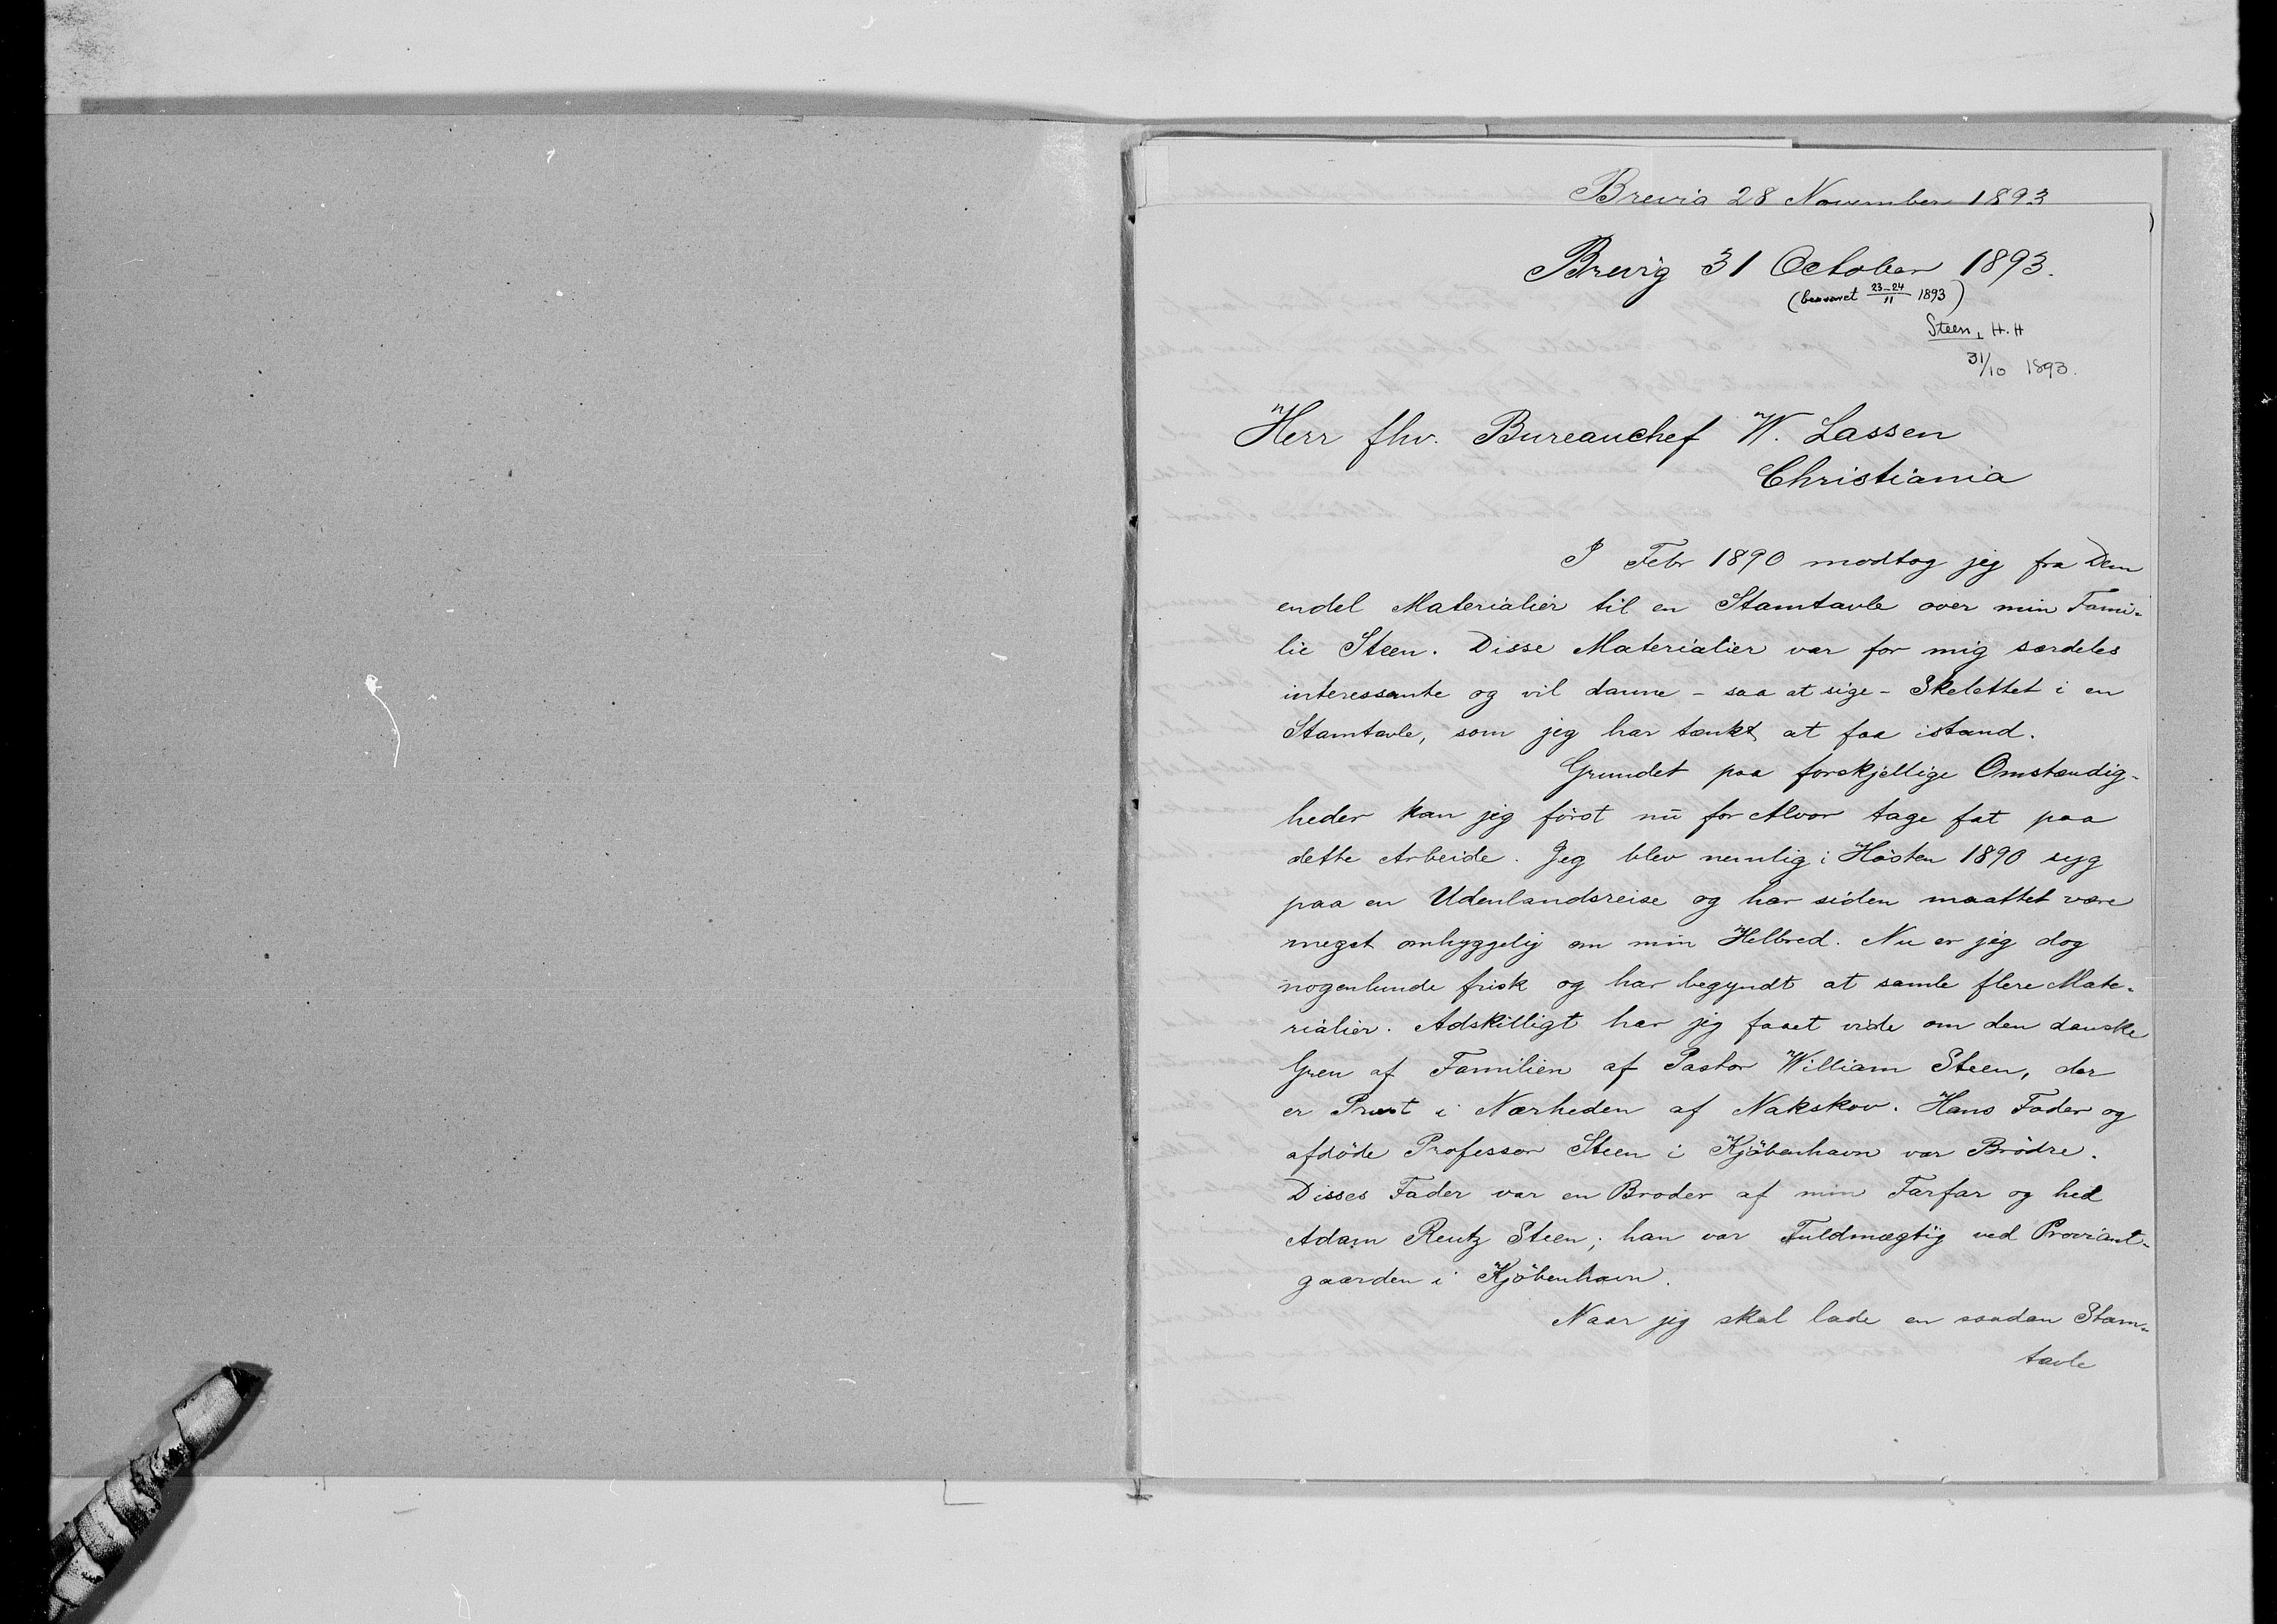 Brevig 28 November 1893
Brevig 31 October 1893.
(besvaret 23-24/11 1893)
Steen, H. H
31/10 1893.
Herr fhv. Bureauchef W. Lassen
Christiania
I Febr 1890 modtog jeg fra Dem
endel Materialier til en Stamtavle over min Fami-
lie Steen. Disse Materialier var for mig særdeles
interessante og vil danne - saa at sige - Skelettet i en
Stamtavle, som jeg har tænkt at faa istand.
Grundet paa forskjellige Omstændig-
heder kan jeg först nu for Alvor tage fat paa
dette Arbeide. Jeg blev nemlig i Hösten 1890 syg
paa en Udenlandsreise og har siden maattet være
meget omhyggelig om min Helbred. Nu er jeg dog
nogenlunde frisk og har begyndt at samle flere Mate-
rialier. Adskilligt har jeg faaet vide om den danske
Gren af Familien af Pastor William Steen, der
er Prest i Nærheden af Nakskov. Hans Fader og
afdöde Professor Steen i Kjöbenhavn var Brödre.
Disses Fader var en Broder af min Farfar og hed
Adam Reutz Steen; han var Fuldmægtig ved Proviant-
gaarden i Kjöbenhavn.
Naar jeg skal lade en saadan Stam-
tavle